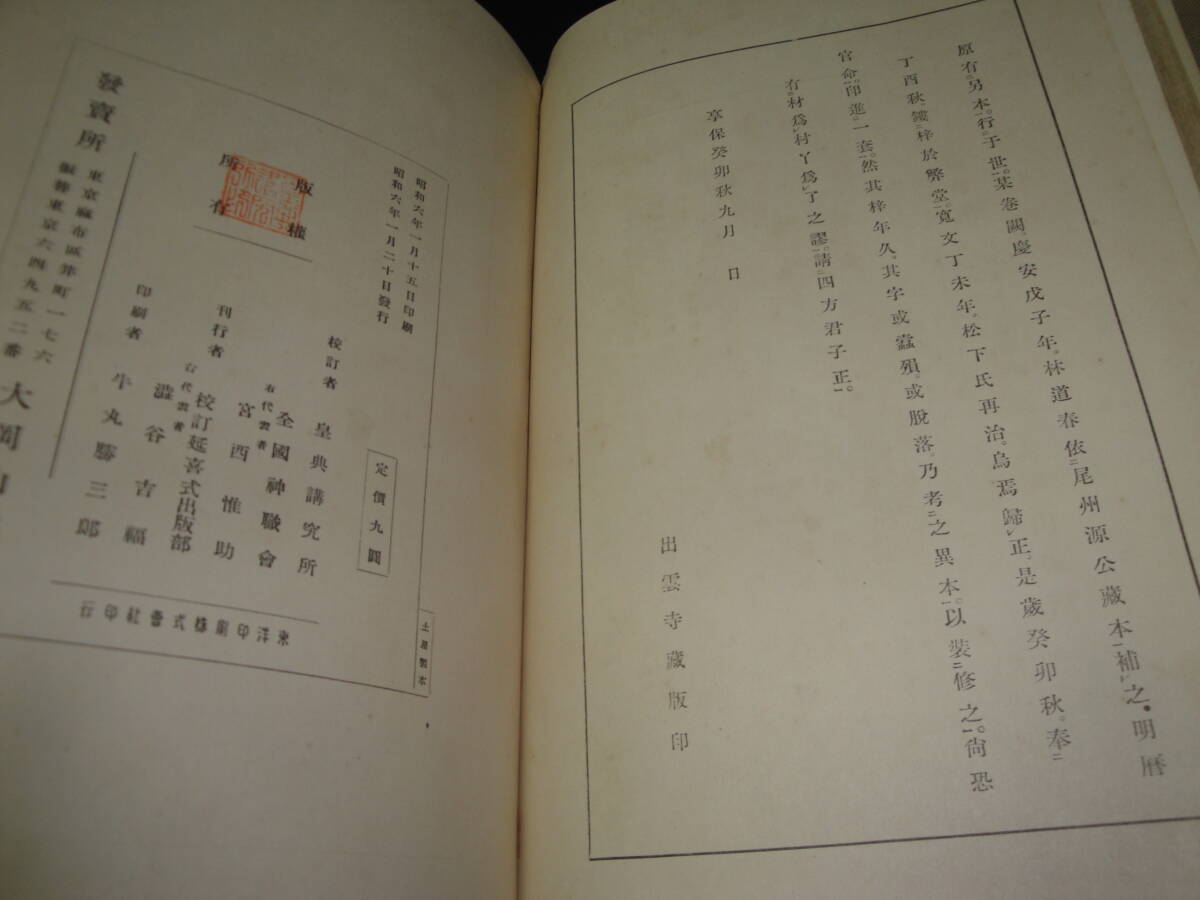 原有另本。行于世。某卷闕。慶安戊子年。林道春依尾州源公藏本補之。明曆
丁酉秋。鏤梓於弊堂。寬文丁未年。松下氏再治。烏焉歸正。是歲癸卯秋。奉
官命。印進一套。然其梓年久。其字或蠧殞。或脫落。乃考之異本。以裝修之。尙恐
有材爲村丫爲了之謬。請四方君子正。
享保癸卯秋九月 日
出雲寺藏版印
昭和六年一月十五日印刷
昭和六年一月二十日發行
版權所有
定價九圓
校訂者 皇典講究所
全國神職會
右代表者 宮西惟助
刊行者 校訂延喜式出版部
右代表者 澁谷吉福
印刷者 牛丸勝三郞
東洋印刷株式會社印行
土屋製本
發賣所 東京麻布區笄町一七六
振替東京六四九五二番
大岡山